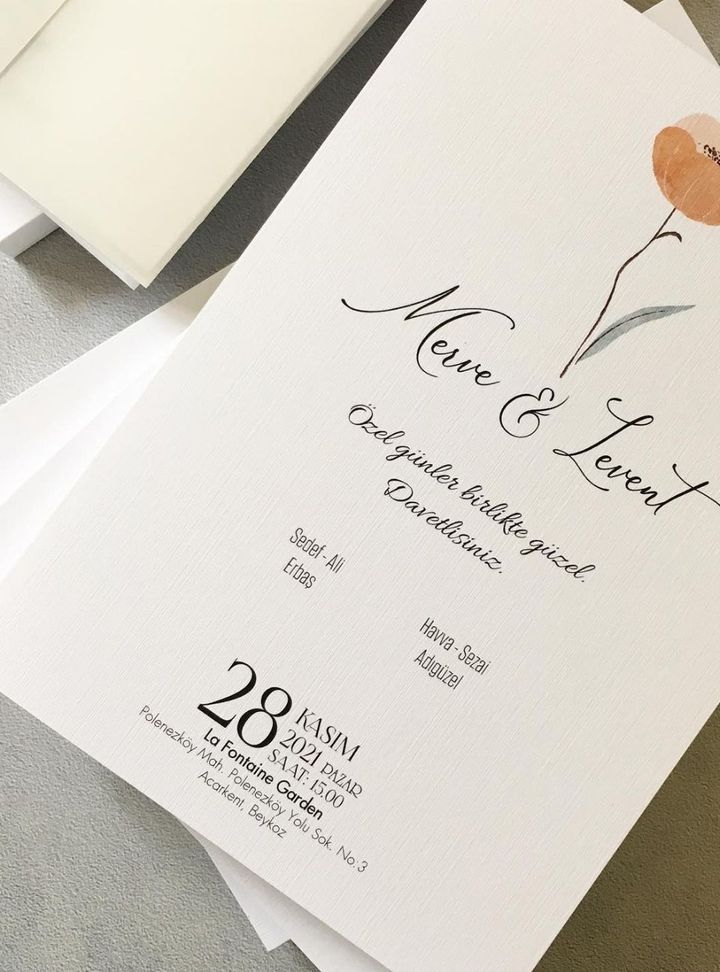 Merve & Levent
Özel günler birlikte güzel.
Davetlisiniz.
Sedef - Ali
Erbaş
Havva - Sezai
Adıgüzel
28
KASIM
2021 PAZAR
SAAT: 15.00
La Fontaine Garden
Polenezköy Mah. Polenezköy Yolu Sok. No:3
Acarkent, Beykoz